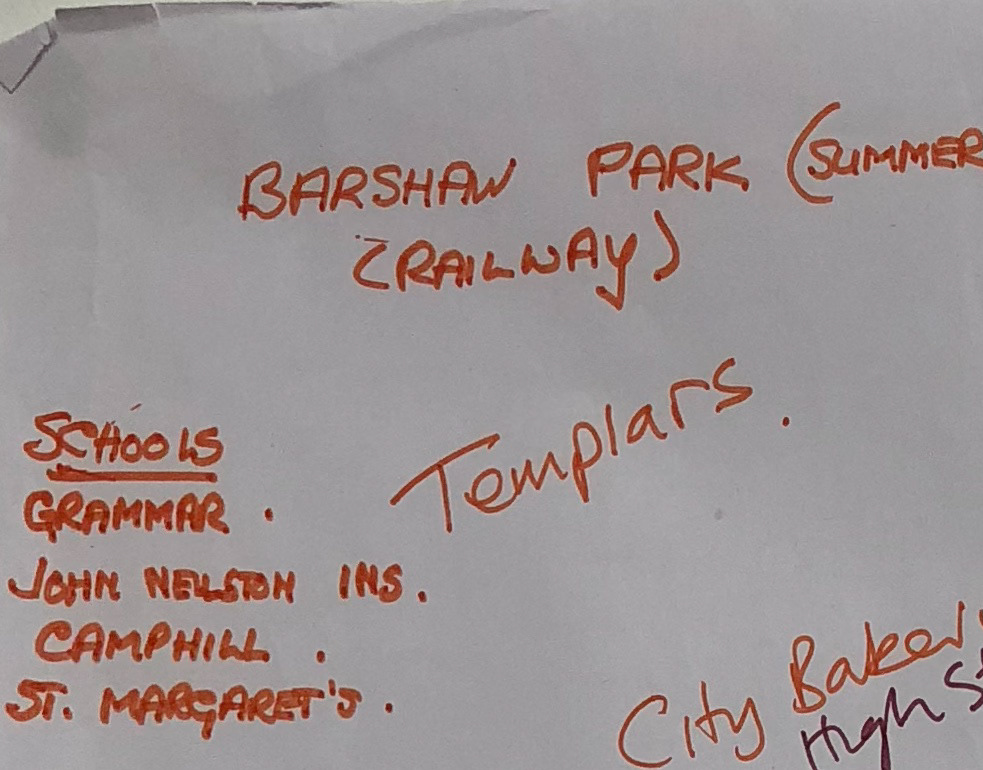 BARSHAW PARK (SUMMER
(RAILWAY)
Templars.
SCHOOLS
GRAMMAR .
JOHN NEILSON INS.
CAMPHILL .
ST. MARGARET'S .
City Bakery
High St